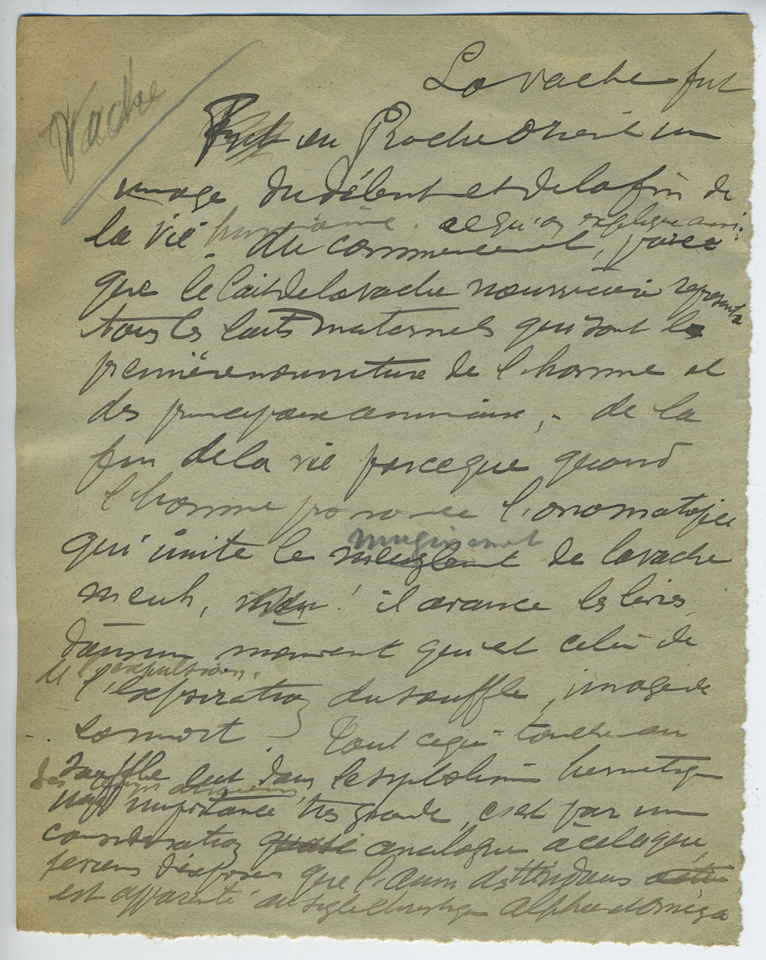 Vache
La vache fut
Fut au Proche Orient un
image du début et de la fin de
la vie humaine. ce qu'on explique ainsi:
du commencement, parce
que le lait de la vache nourricière représente
tous les laits maternels qui sont la
première nourriture de l'homme et
des principaux animaux, - de la
fin de la vie parce que quand
l'homme prononce l'onomatopée
mugissement
qui imite le meuglement de la vache
meuh, ! il avance les lèvres
dans un mouvement qui est celui de
de l'expulsion.
l'expiration du souffle, image de
sa mort Tout ce qui touche au
souffle eut dans le symbolisme hermétique
des temps anciens
une importance très grande, c'est par une
considération quasi analogue à celle que
je viens d'exposer que l'aum des hindous
est apparenté au sigle christique alpha et oméga